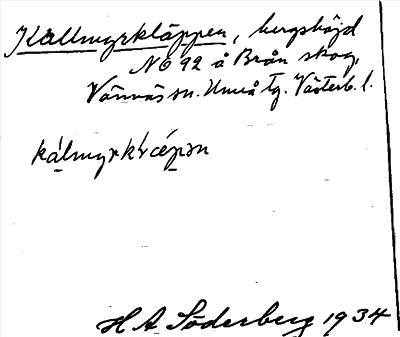 Källmyrkläppen, bergshöjd
NO 92 å Brån skog,
Vännäs sn. Umeå Tg. Västerb. l.
H A Söderberg 1934